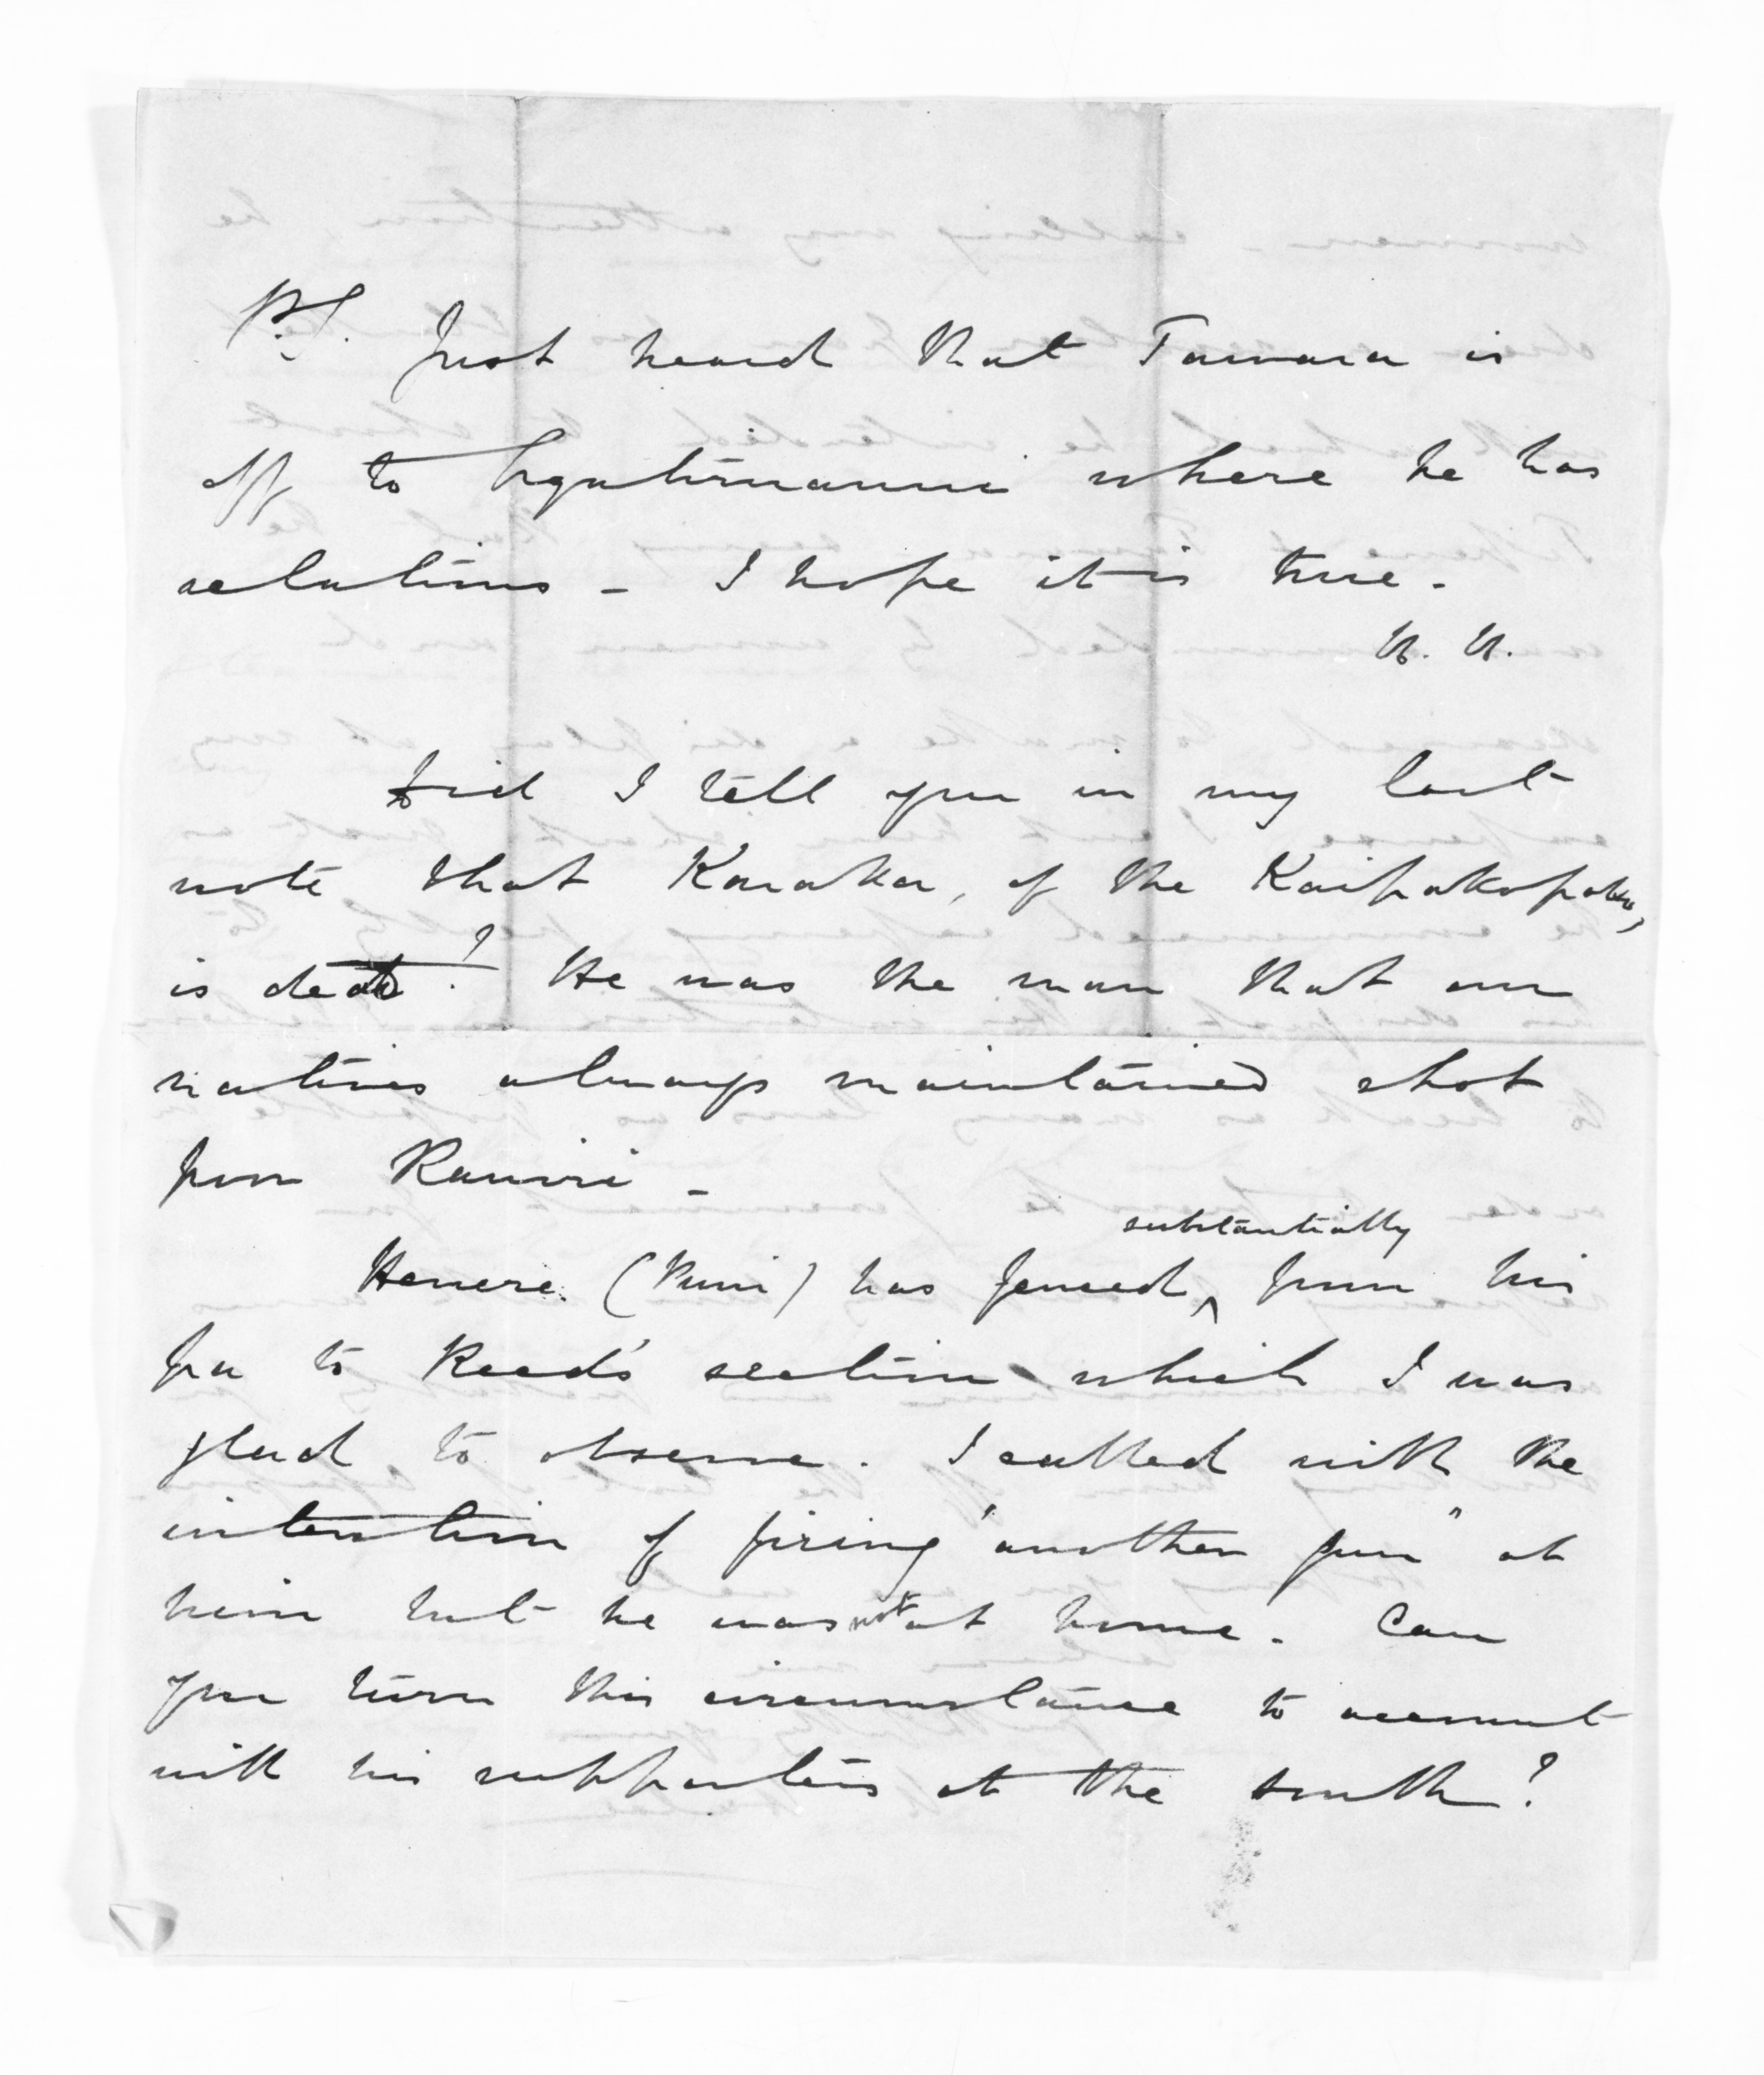 P.S. Just heard that Tawara is
off to Ngatimaunui where he has
relations - I hope it is true.
H. H.
Did I tell you in my last
note that Karaka, of the Kaipakopako,
is dead? He was the man that our
natives always maintained shot
poor Rawiri -
Henere (Puni) has fenced substantially from his
pa to Reed's section which I was
glad to observe. I called with the
intention of firing "another gun" at
him but he was not at home. Can
you turn this circumstance to account
with his supporters at the south?